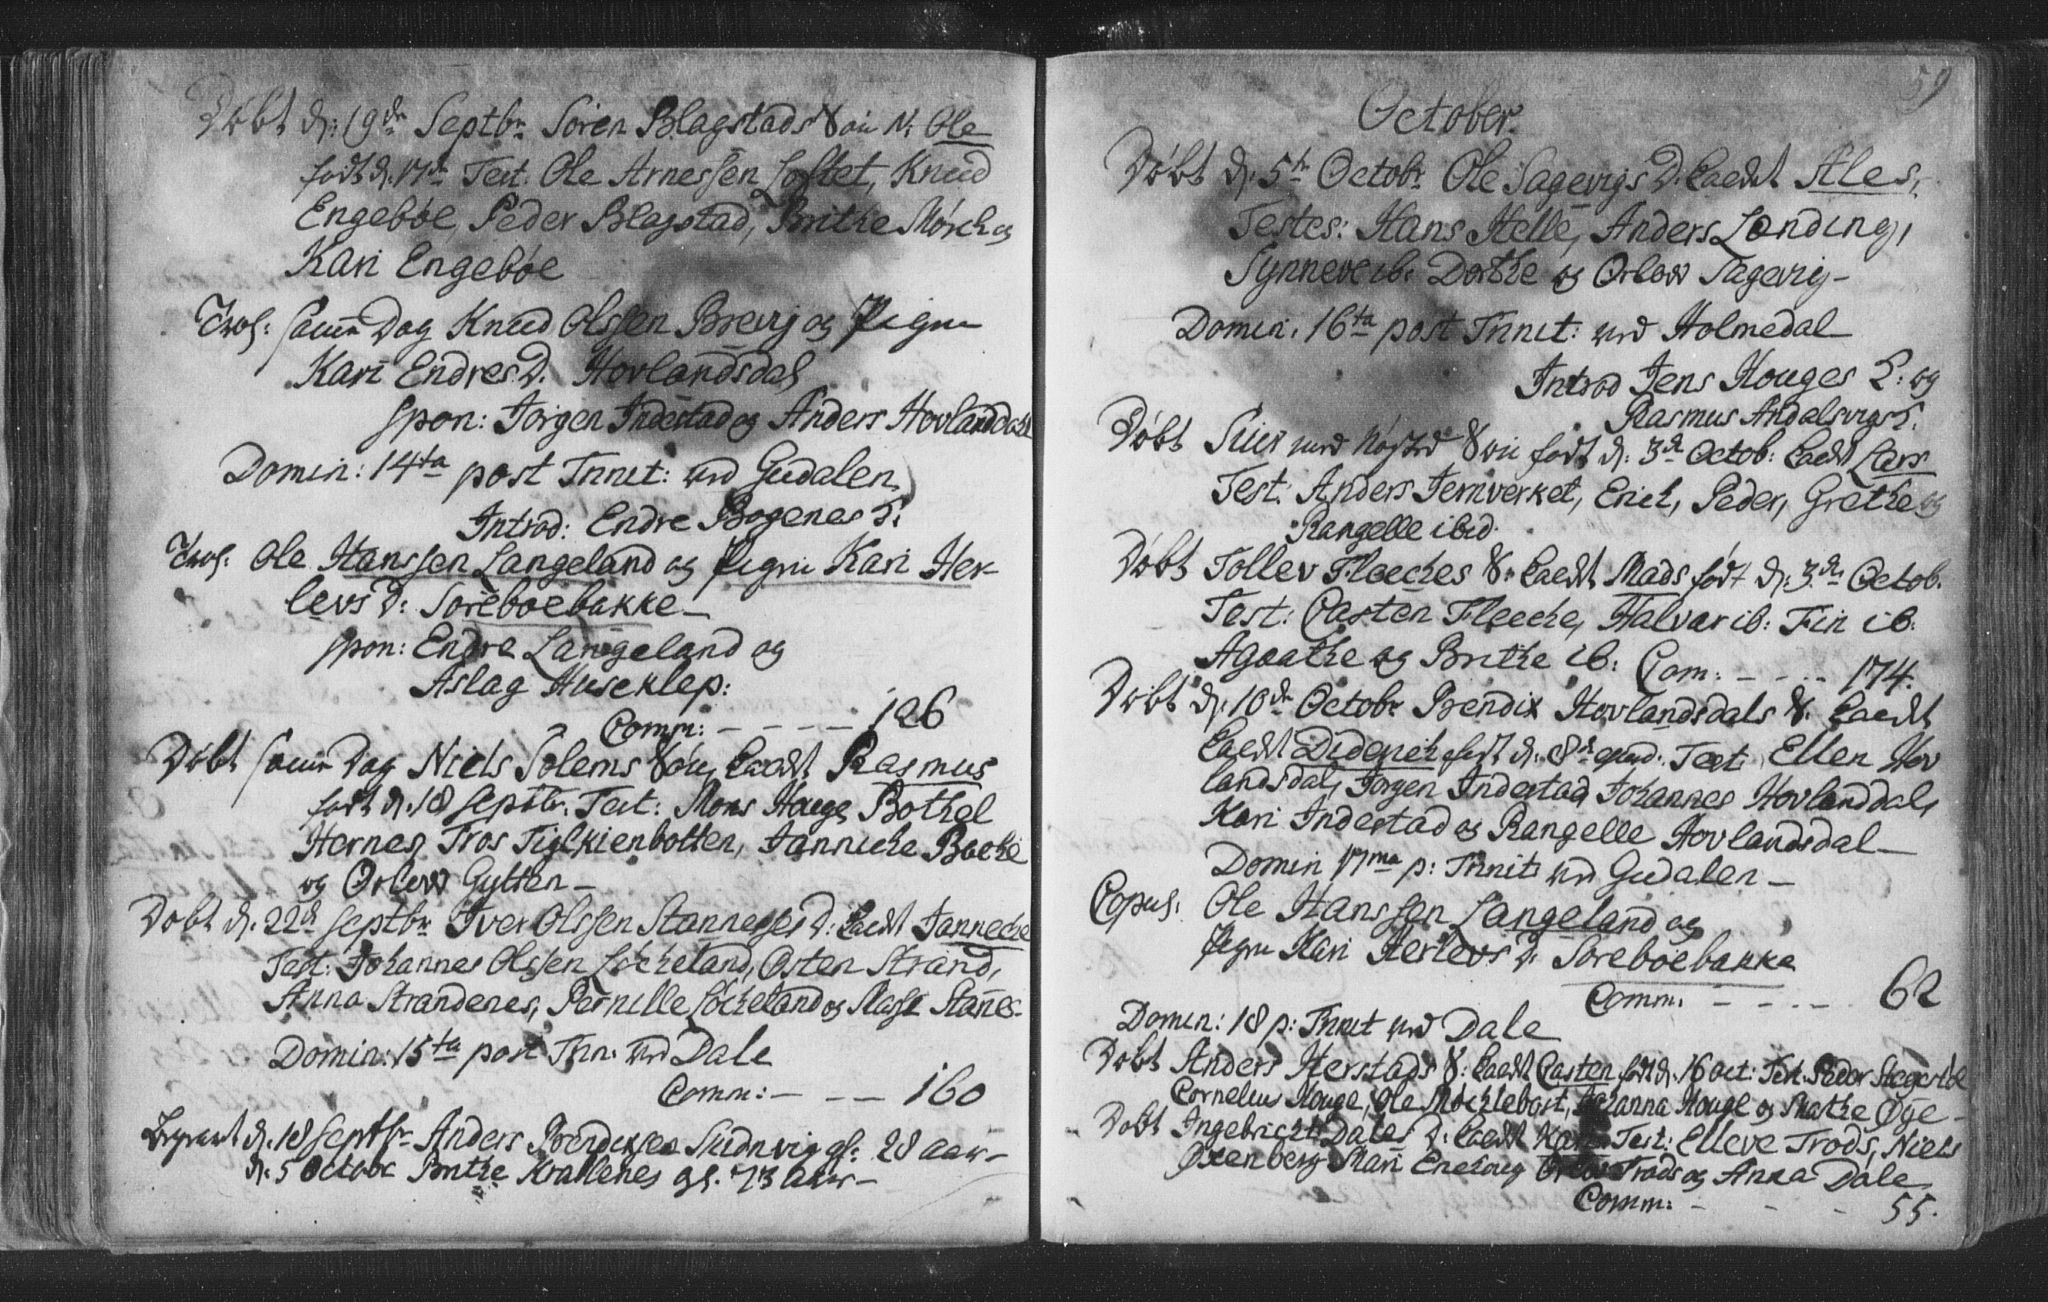 Døbt d: 19de Septbr Søren Blagstads Søn N: Ole
født d. 17de Test: Ole Arnessen Loftet, Knud
Engebøe, Peder Blagstad, Brithe Mørch og
Kari Engebøe
Trol: samme Dag Knud Olssen Brevig og Pigen
Kari Endres D. Hovlandsdal,
spon: Jørgen Indestad og Anders Hovlanddahl
Domin: 14ta post Trinit: ved Gudalen,
Introd: Endre Bogenes
Trol: Ole Hanssen Langeland og Pigen Kari Her-
levs D: Sørebøebakke
spon: Endre Langeland og
Aslag Huseklep:
Comm: - - - - 126
Døbt samme Dag Niels Solems Søn, kaldt Rasmus
født d. 18 septbr. Test: Mons Houge, Bothel
Hernes, Tros Tielkienbotten, Jannicke Boche
og Orlow Gytten
Døbt d. 22de septbr Iver Olssen Stannesses D: kaldt Jannecke
Test: Johannes Olssen Løcheland, Osten Strand,
Anna Strandenes, Pernille Løcheland og Stannes
Domin: 15ta post Trin: ved Dale
Comm: - - - 160
Begravet d. 18 Septbr Anders Bendixsen gl: 28 aar
d. 5 Octobr Brithe Krakenes gl. 73 Aar
59
October.
Døbt d. 5te Octobr Ole Sagevigs D. kaldt Ales,
Testes: Hans Helle, Anders Londing,
Synneve ib: Dorthe og Orlow Sagevig
Domin: 16ta post Trinit: ved Holmedal
Introd Jens Houges og
Rasmus Andalsvigs
Døbt Siur Søn født d. 3de Octob: kaldt Lars
Test: Anders Jernverket, Erich, Peder, Grethe og
Rangelle ibid.
Døbt Tollev Floeches S. kaldt Mads født d. 3de Octob.
Test: Casten Fleche, Halvar ib: Fin ib:
Agaathe og Brithe ib: Com: - - - 174.
Døbt d. 10de Octobr Bendix Hovlandsdals S. kaldt
kaldt Diderich født d. 8de Test. Ellen Hov
landsdal, Jørgen Indestad, Johannes Hovlanddal,
Kari Indestad og Rangelle Hovlandsdal
Domin 17ma p: Trinit: ved Gudalen
Copul: Ole Hanssen Langeland og
Pigen Kari Herlevs D. Sørebøebakke
Comm: - - - - 62
Domin: 18 p: Trinit ved Dale
Døbt Anders Herstads S. kaldt Casten født d. 16 oct: Test. Peder Stegerbøe
Cornelius Houge, Ole Møchlebost, Johanna Houge og Marthe Øye
Døbt Ingebricht Dales D. kaldt Test: Elleve Trods, Niels
Oxenberg Mari Enehoug Orlow Trods og Anna Dale
Comm: - - - 55.